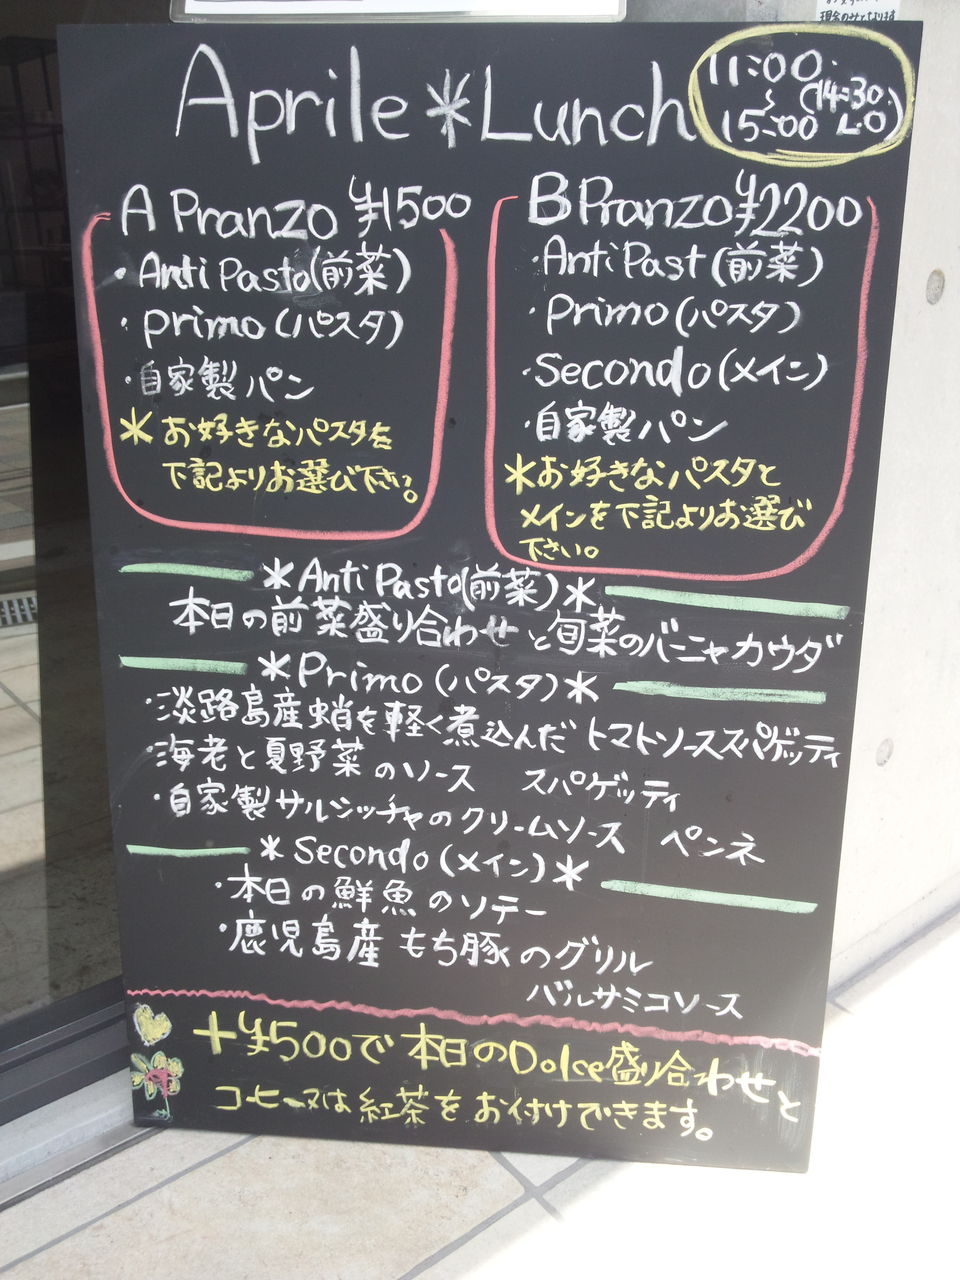 現金のみとなります
Aprile*Lunch
11:00
~
15:00
(14:30
L.O)
A Pranzo ¥1500
・Anti Pasto(前菜)
・primo(パスタ)
・自家製パン
*お好きなパスタを
下記よりお選び下さい。
B Pranzo¥2200
・Anti Past(前菜)
・Primo(パスタ)
・Secondo(メイン)
・自家製パン
*お好きなパスタと
メインを下記よりお選び
下さい。
*Anti Pasto(前菜)*
本日の前菜盛り合わせと旬菜のバーニャカウダ
*Primo(パスタ)*
・淡路島産蛸を軽く煮込んだトマトソーススパゲッティ
・海老と夏野菜のソース スパゲッティ
・自家製サルシッチャのクリームソース ペンネ
*Secondo(メイン)*
・本日の鮮魚のソテー
・鹿児島産もち豚のグリル
バルサミコソース
+¥500で本日のDolce盛り合わせと
コーヒー又は紅茶をお付けできます。